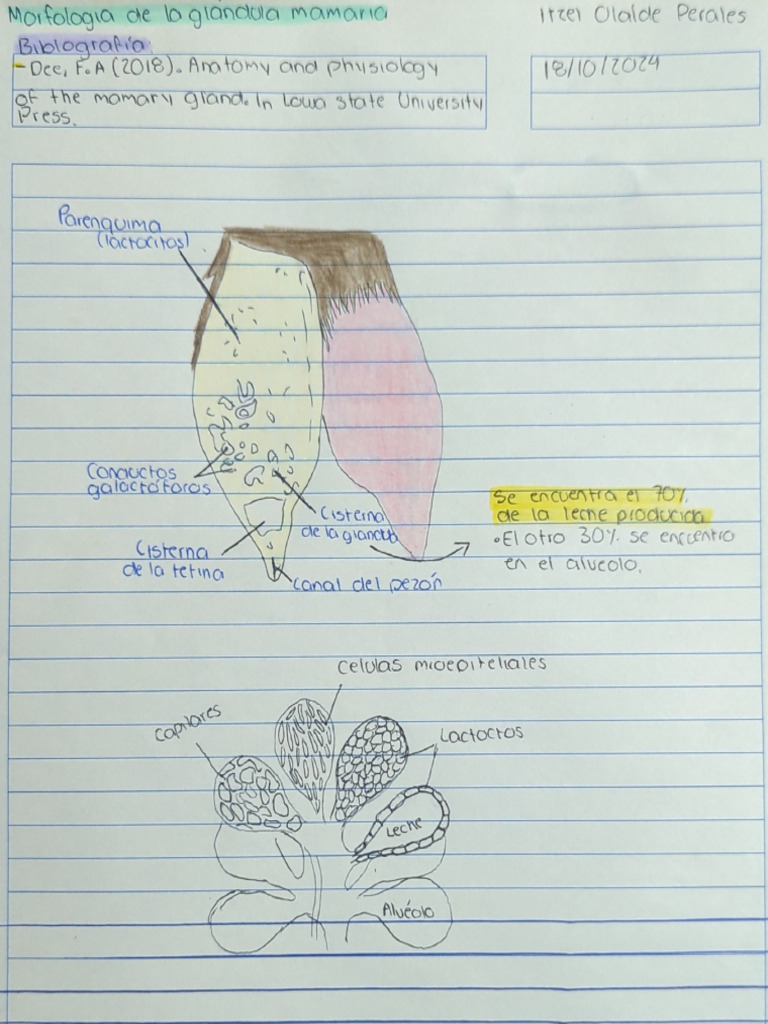 Morfologia de la glándula mamaria
Itzel Olalde Perales
Bibliografía
- Dee, F.A (2018). Anatomy and physiology
of the mamary gland. In Lowa state University
Press.
18/10/2024
Parenquima
(lactocitos)
Conductos
galactóforos
Cisterna
de la glandula
Cisterna
de la tetina
Canal del pezón
Se encuentra el 70%
de la leche producida
• El otro 30% se encuentra
en el alveolo.
Celulas mioepiteliales
Capilares
Lactocitos
Leche
Alvéolo